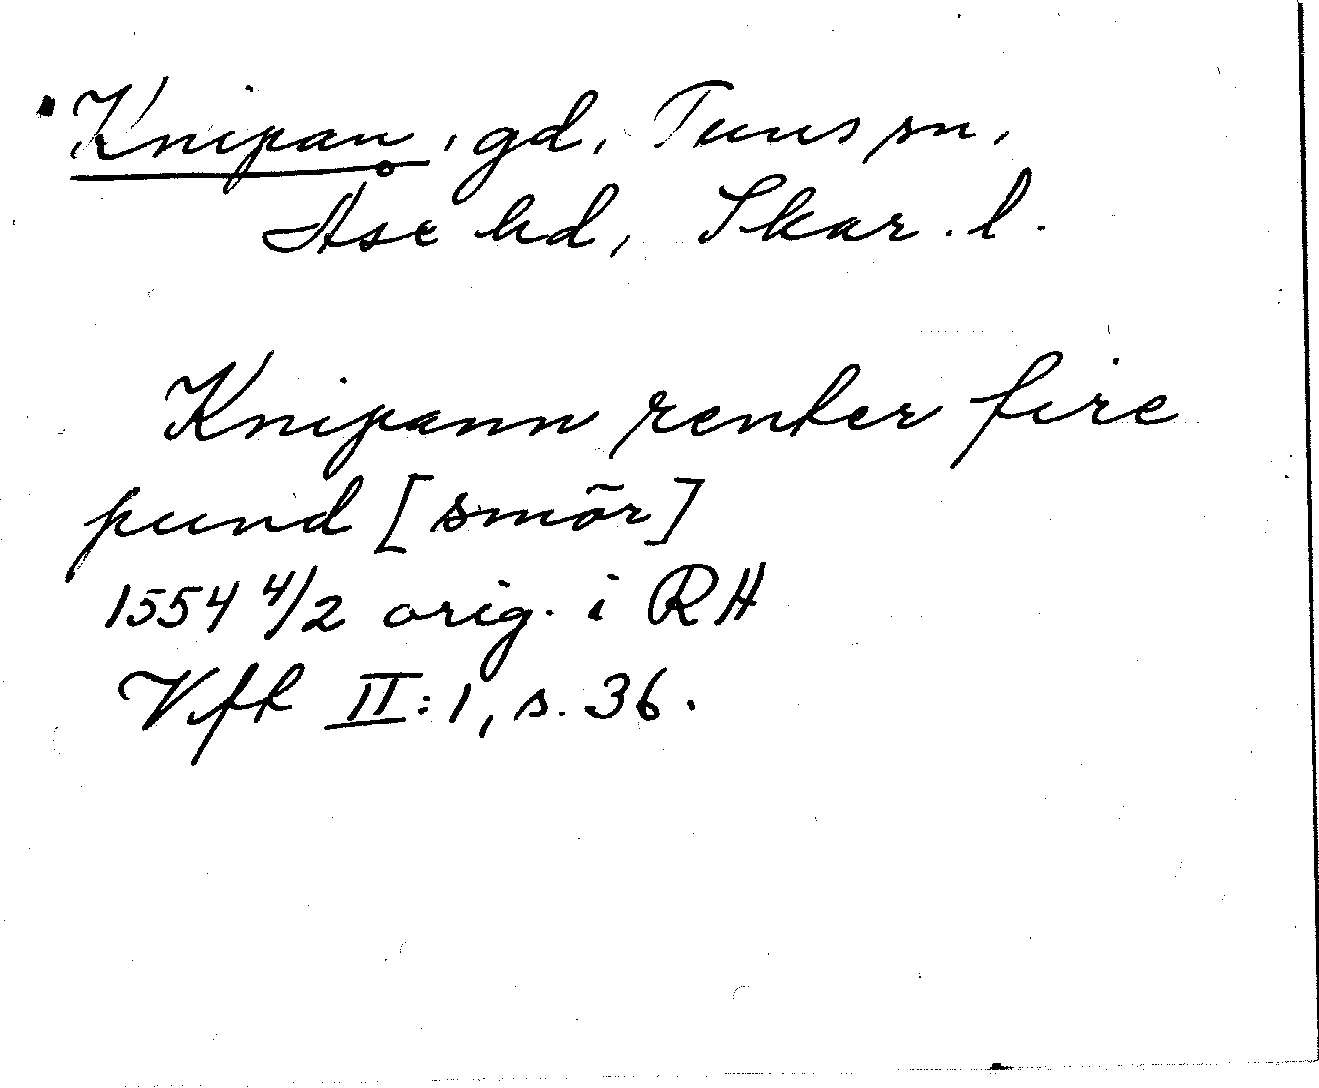 Knipan, gd, Tuns sn,
Åse hd, Skar. l.
Knipann renter fire
pund [smör]
1554 4/2 orig. i RA
Vfk II:1, s. 36.